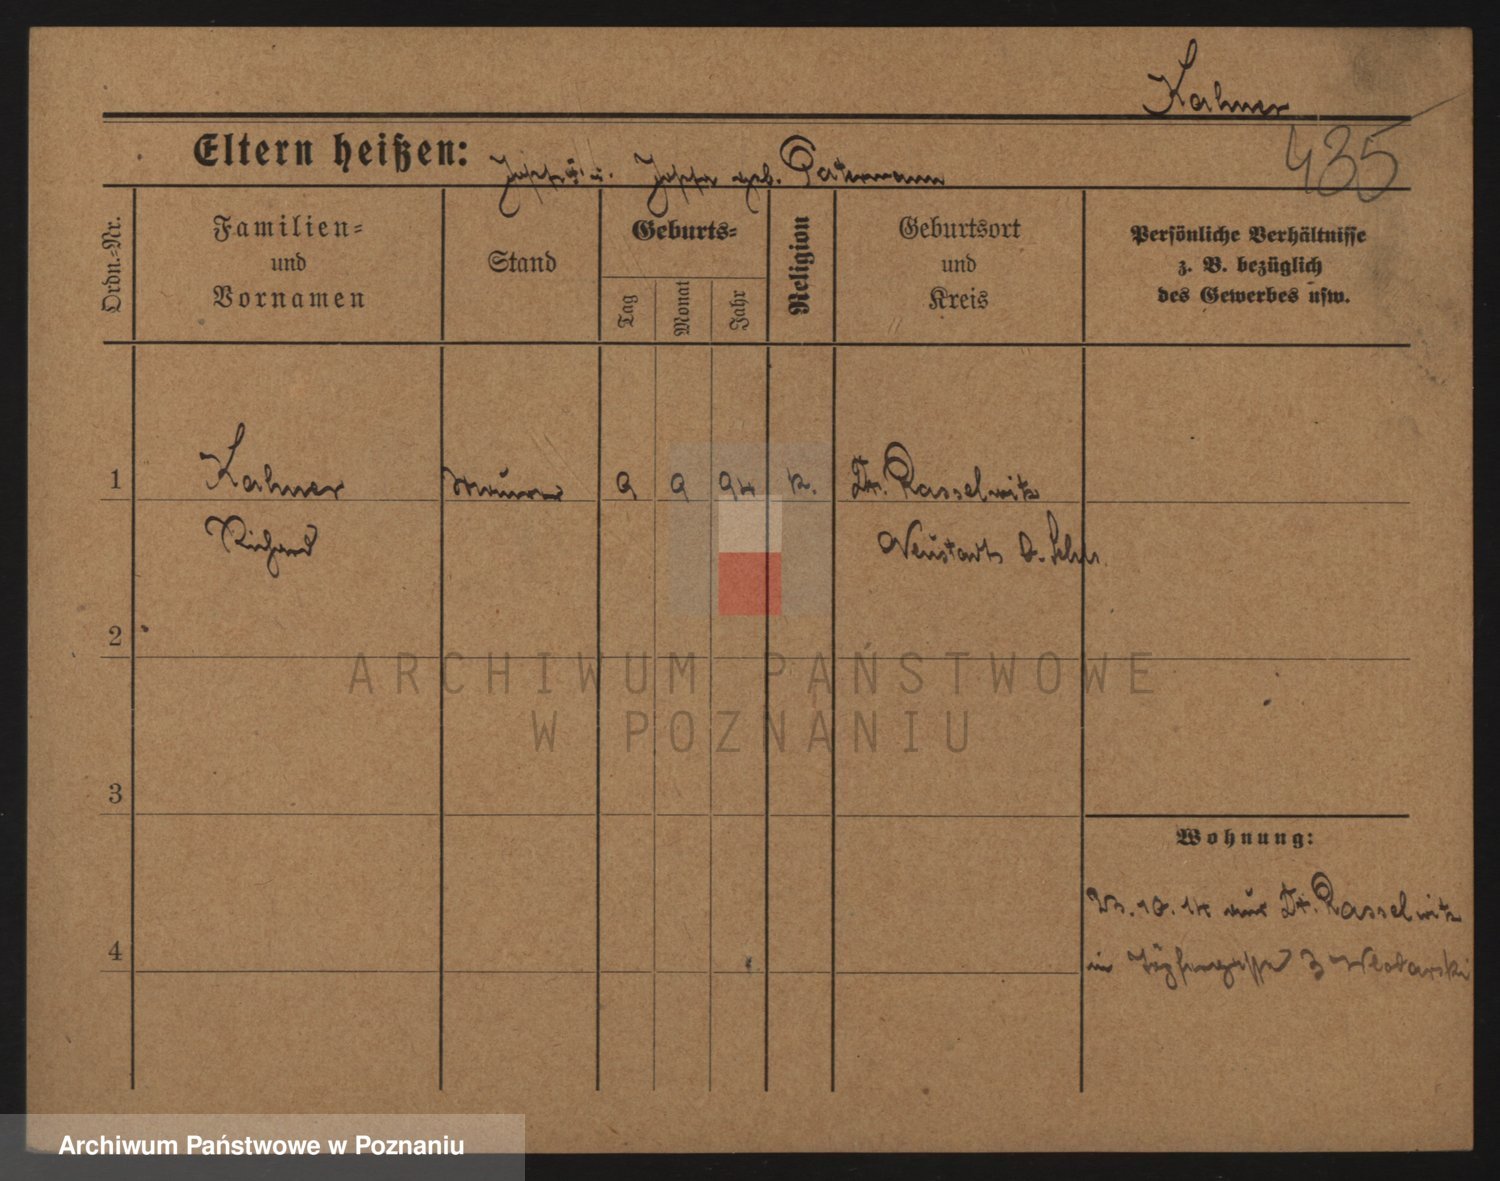 Kahner
435
Eltern heißen: Josef u. Josefa geb. Patermann
Ordn.-Nr.
Familien-
und
Vornamen
Stand
Geburts-
Tag
Monat
Jahr
Religion
Geburtsort
und
Kreis
Persönliche Verhältnisse
z. B. bezüglich
des Gewerbes usw.
1 Kahner Maurer 9 9 94 k. Dt. Rasselwitz
Richard Neustadt O. Schl.
2
3
4
Wohnung:
23.10.14 aus Dt. Rasselwitz
in 3 Wlodarski
ARCHIWUM PAŃSTWOWE
W POZNANIU
Archiwum Państwowe w Poznaniu